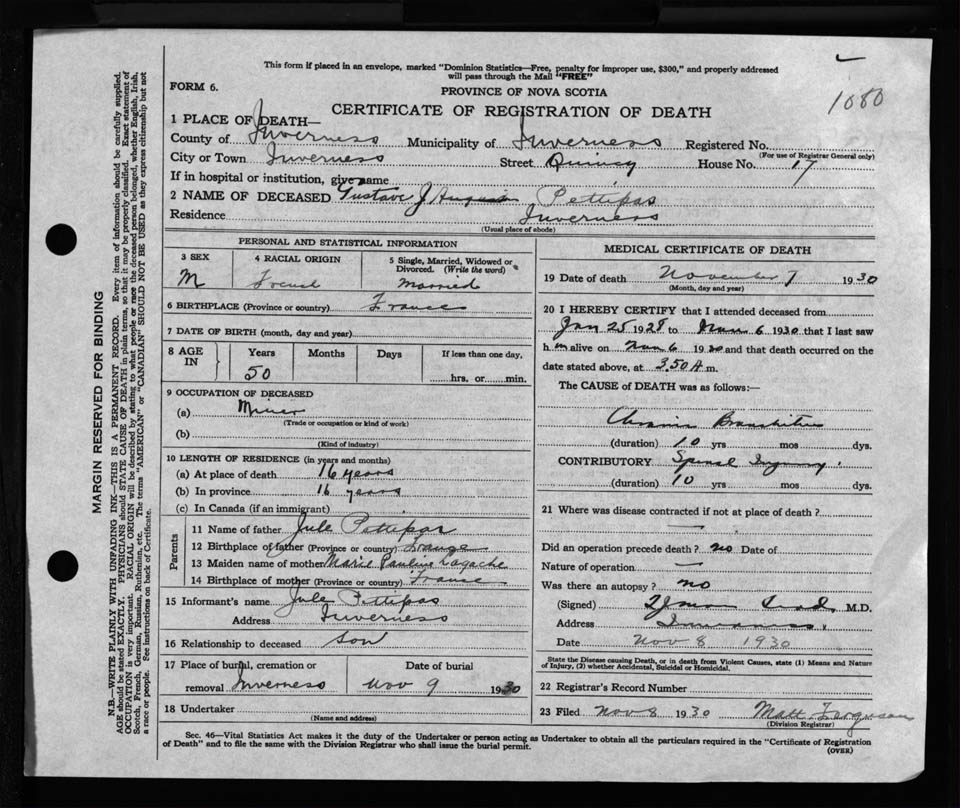 This form if placed in an envelope, marked "Dominion Statistics—Free, penalty for improper use, $300," and properly addressed
will pass through the Mail "FREE"
FORM 6.
PROVINCE OF NOVA SCOTIA
1080
CERTIFICATE OF REGISTRATION OF DEATH
1 PLACE OF DEATH—
County of Inverness Municipality of Inverness Registered No.
(For use of Registrar General only)
City or Town Inverness Street Quincy House No. 17
If in hospital or institution, give name
2 NAME OF DECEASED Gustave J Pettipas
Residence Inverness
(Usual place of abode)
PERSONAL AND STATISTICAL INFORMATION
3 SEX
M
4 RACIAL ORIGIN
French
5 Single, Married, Widowed or
Divorced. (Write the word)
Married
6 BIRTHPLACE (Province or country) France
7 DATE OF BIRTH (month, day and year)
8 AGE IN
Years Months Days If less than one day,
50 hrs. or min.
9 OCCUPATION OF DECEASED
(a) Miner
(Trade or occupation or kind of work)
(b)
(Kind of industry)
10 LENGTH OF RESIDENCE (in years and months)
(a) At place of death 16 years
(b) In province 16 years
(c) In Canada (if an immigrant)
Parents
11 Name of father Jule Pettipas
12 Birthplace of father (Province or country) France
13 Maiden name of mother Marie Pauline Lagache
14 Birthplace of mother (Province or country) France
15 Informant's name Jule Pettipas
Address Inverness
16 Relationship to deceased Son
17 Place of burial, cremation or Date of burial
removal Inverness Nov 9 1930
18 Undertaker
(Name and address)
MEDICAL CERTIFICATE OF DEATH
19 Date of death November 7 1930
(Month, day and year)
20 I HEREBY CERTIFY that I attended deceased from
Jan 25 1928 to Nov 6 1930 that I last saw
him alive on Nov 6 1930 and that death occurred on the
date stated above, at 3.50 A m.
The CAUSE of DEATH was as follows:—
Chronic Bronchitis
(duration) 10 yrs mos dys.
CONTRIBUTORY Spinal Injury.
(duration) 10 yrs mos dys.
21 Where was disease contracted if not at place of death?
—
Did an operation precede death? no Date of
Nature of operation —
Was there an autopsy? no
(Signed) M.D.
Address Inverness.
Date Nov 8 1930
State the Disease causing Death, or in death from Violent Causes, state (1) Means and Nature
of Injury, (2) whether Accidental, Suicidal or Homicidal.
22 Registrar's Record Number
23 Filed Nov 8 1930 Matt. Ferguson
(Division Registrar)
Sec. 46—Vital Statistics Act makes it the duty of the Undertaker or person acting as Undertaker to obtain all the particulars required in the "Certificate of Registration
of Death" and to file the same with the Division Registrar who shall issue the burial permit.
(OVER)
MARGIN RESERVED FOR BINDING
N.B.—WRITE PLAINLY WITH UNFADING INK—THIS IS A PERMANENT RECORD. Every item of information should be carefully supplied.
AGE should be stated EXACTLY. PHYSICIANS should STATE CAUSE OF DEATH in plain terms, so that it may be properly classified. Exact statement of
OCCUPATION is very important. RACIAL ORIGIN will be described by stating to what people or race the deceased person belonged, whether English, Irish,
Scotch, French, German, Russian, Ruthenian, etc. The terms "AMERICAN" or "CANADIAN" SHOULD NOT BE USED as they express citizenship but not
a race or people. See instructions on back of Certificate.